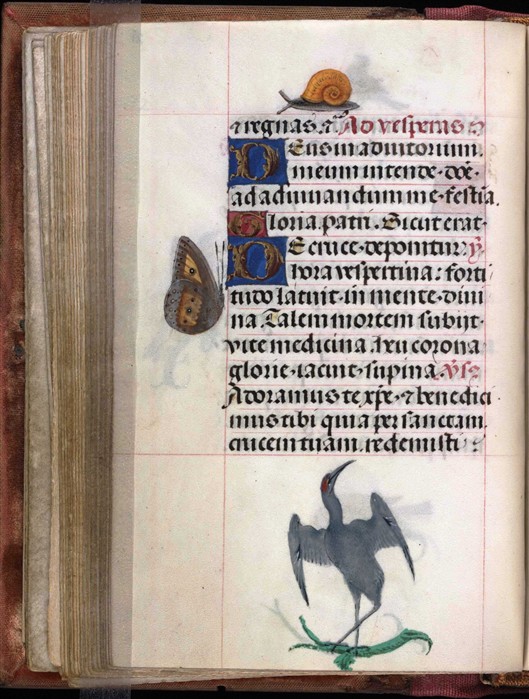 ⁊ regnas. ⁊c̃ Ad vesperas
Deus in adiutorium
meum intende. dõe.
ad adiuuandum me. festĩa.
Gloria. patri. Sicut erat.
De cruce. deponitur. ỹ
hora vespertina: forti
tudo latuit. in mente. diui
na. Talem mortem subijt.
vite medicina. heu corona
glorie. iacuit. supina. ỹsꝫ
Adoramus te xp̃e. ⁊ benedici
mus tibi quia per sanctam.
crucem tuam. redemisti